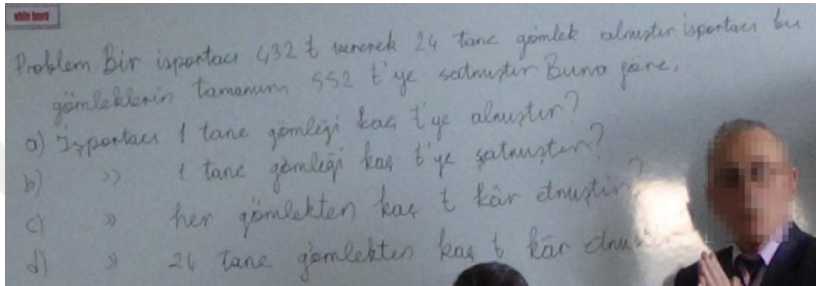 white board
Problem Bir isportacı 432 ₺ vererek 24 tane gömlek almıştır isportacı bu
gömleklerin tamamını 552 ₺'ye satmıştır Buna göre,
a) İsportacı 1 tane gömleği kaç ₺'ye almıştır?
b) >> 1 tane gömleği kaç ₺'ye satmıştır?
c) >> her gömlekten kaç ₺ kâr etmiştir?
d) >> 24 tane gömlekten kaç ₺ kâr